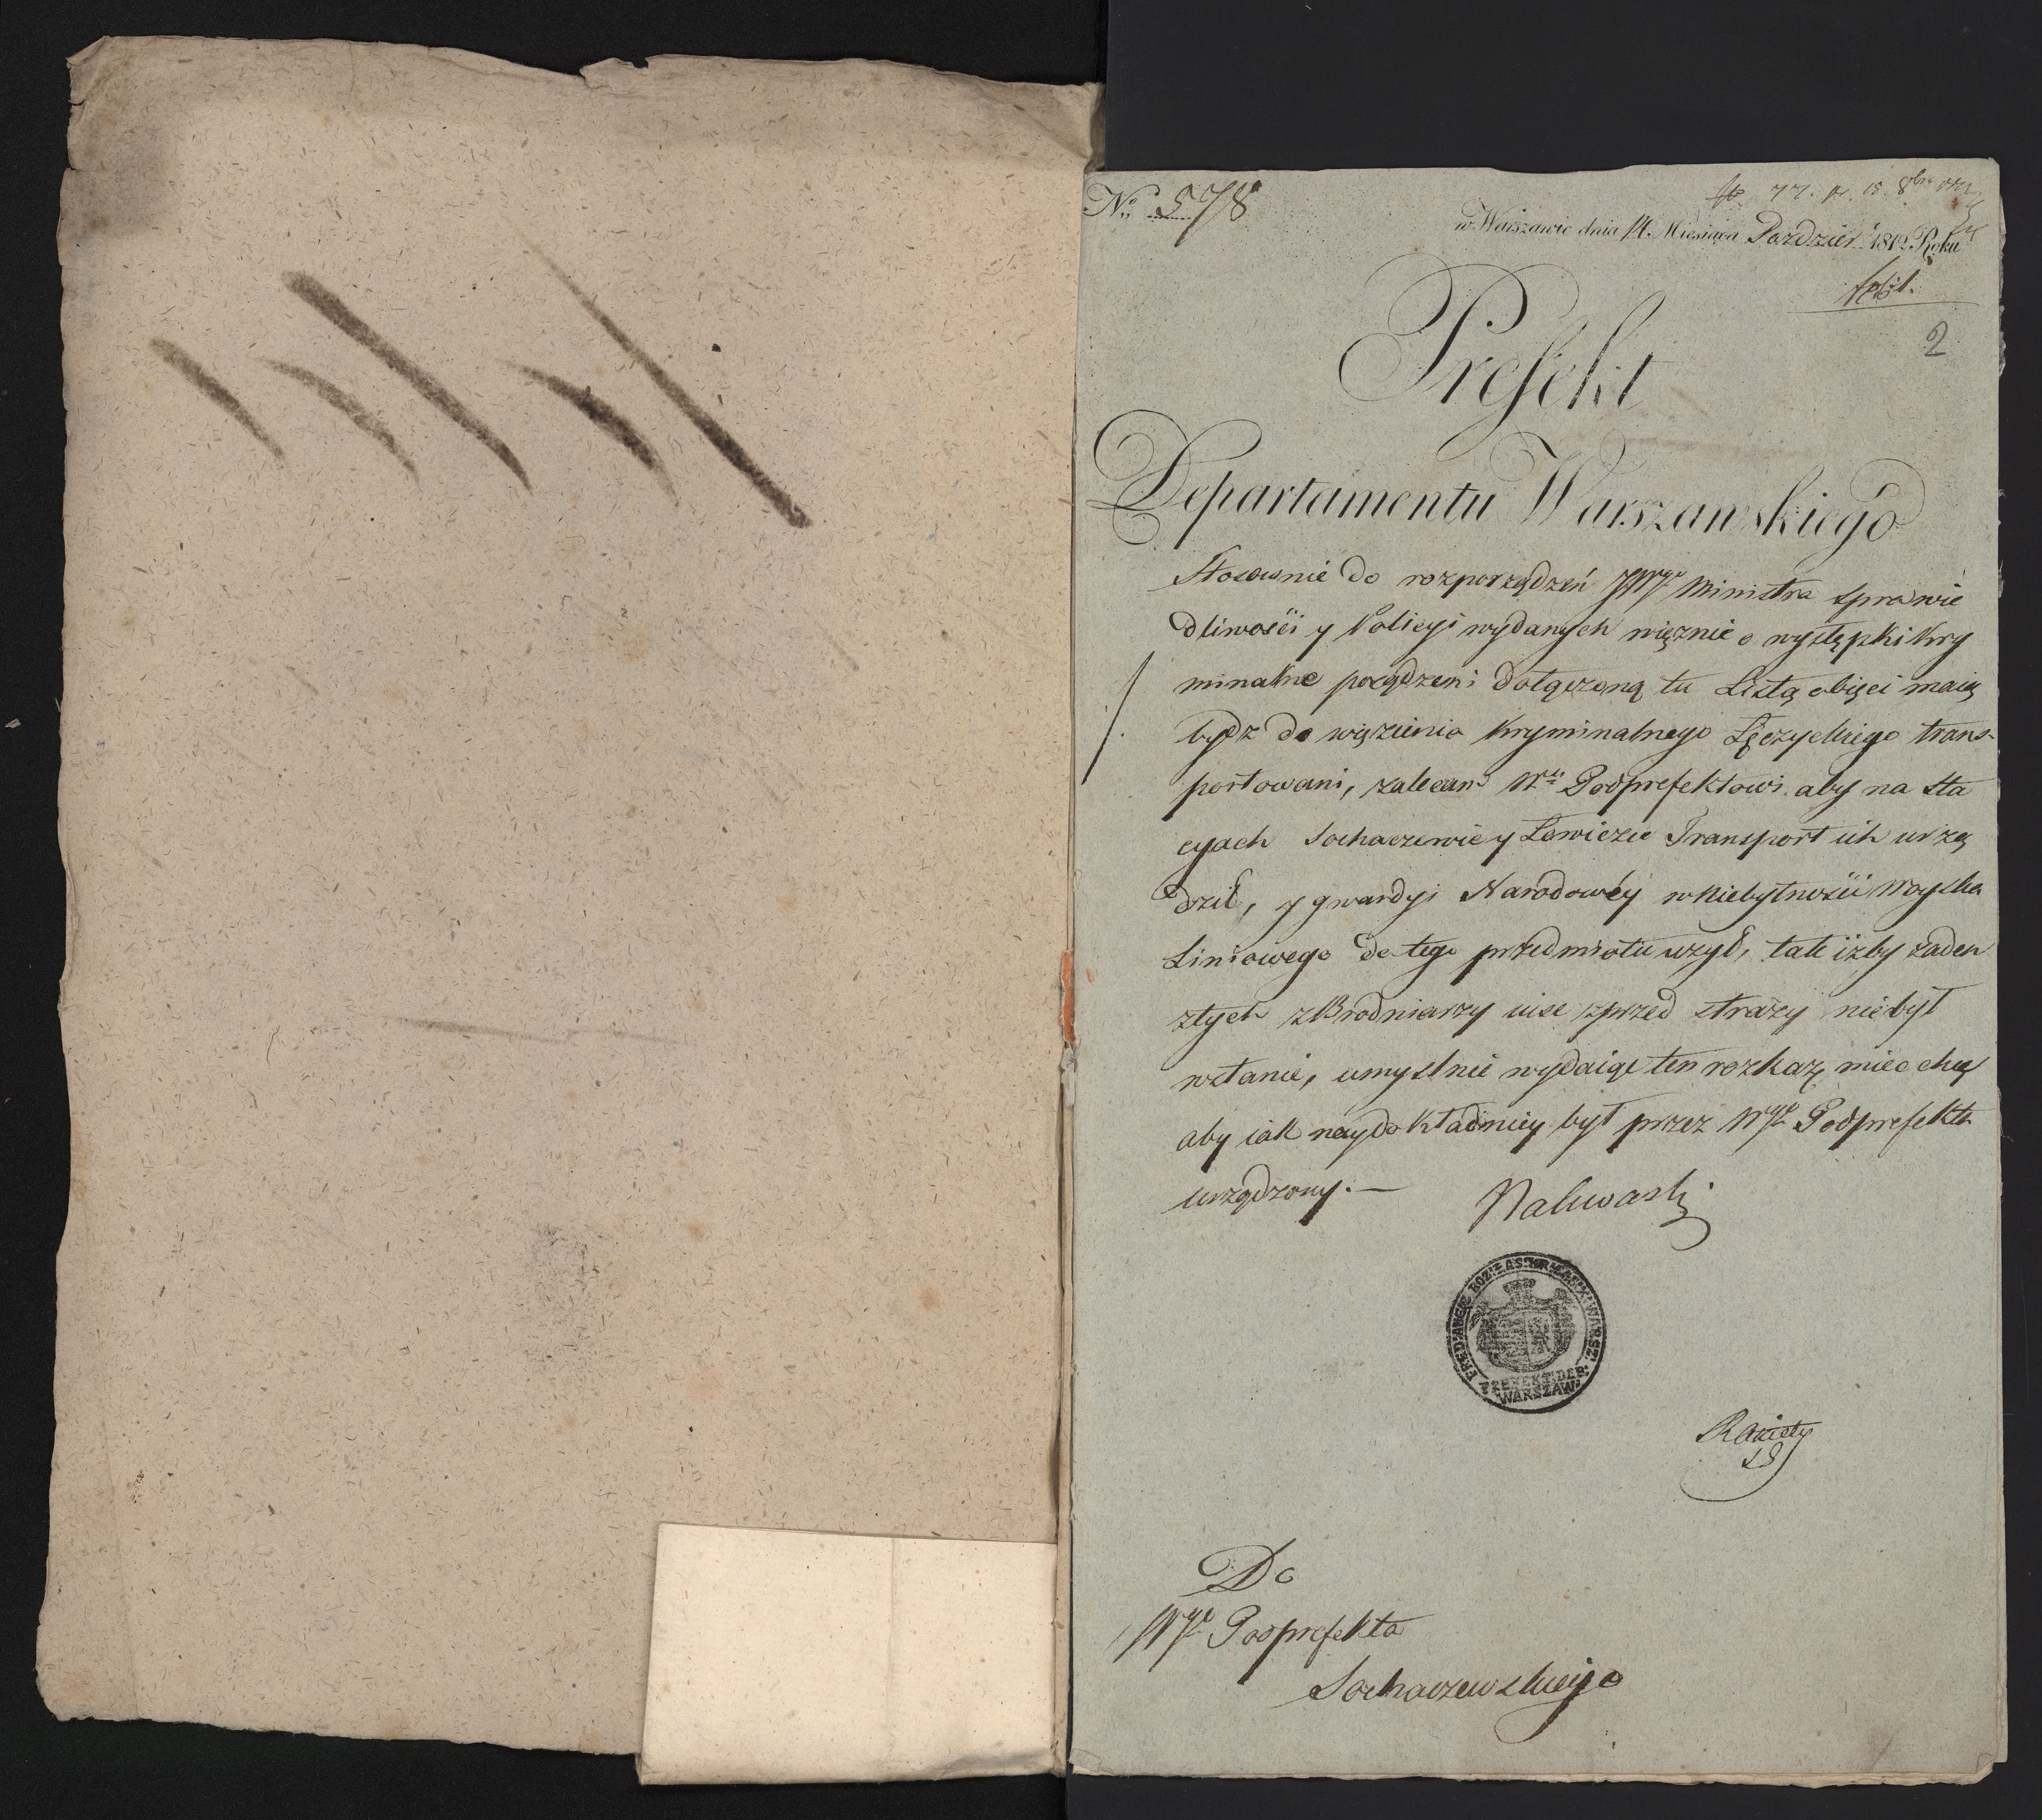 No 578
w Warszawie dnia 14. Miesiąca Paździer 1812 Roku
2
Prefekt
Departamentu Warszawskiego
Stosownie do rozporządzeń JWgo Ministra Sprawie
dliwości y Policyi wydanych więznie o występki kry
minalne posądzeni dołączoną tu Listą obięci maią
bydz do więzienia kryminalnego Łęczyckiego trans-
portowani, zalecam Wu Podprefektowi aby na sta
cyach Sochaczewie y Łowiczu Transport ich urzą
dził, y gwardyi Narodowéy w niebytności woyska
Liniowego do tego przedmiotu użył, tak iżby żaden
ztych zbrodniarzy uisc zprzed straży niebył
wstanie, umyslnie wydaiąc ten rozkaz, miec chcę
aby iak naydokładniey był przez Wgo Podprefekta
urządzony. —
Nakwaski
PREFEKT DEP.
WARSZAW.
Do
Wgo Podprefekta
Sochaczewskiego